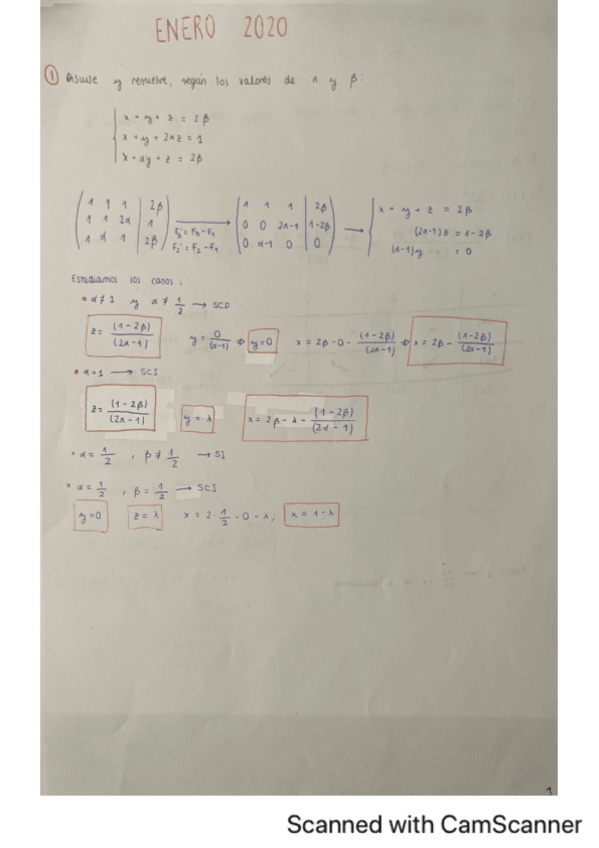 ENERO 2020
① Discute y resuelve, según los valores de α y β:
x + y + z = 2β
x + y + 2αz = 1
x + αy + z = 2β
1 1 1 | 2β
1 1 2α | 1
1 α 1 | 2β
F3' = F3 - F1
F2' = F2 - F1
1 1 1 | 2β
0 0 2α-1 | 1-2β
0 α-1 0 | 0
x + y + z = 2β
(2α-1)z = 1-2β
(α-1)y = 0
Estudiamos los casos:
• α ≠ 1 y α ≠ 1/2 → SCD
z = (1-2β)/(2α-1) y = 0/(α-1) ⇒ y=0 x = 2β - 0 - (1-2β)/(2α-1) ⇒ x = 2β - (1-2β)/(2α-1)
• α=1 → SCI
z = (1-2β)/(2α-1) y = λ x = 2β - λ - (1-2β)/(2α-1)
• α = 1/2 , β ≠ 1/2 → SI
• α = 1/2 , β = 1/2 → SCI
y=0 z = λ x = 2·1/2 - 0 - λ; x = 1-λ
1
Scanned with CamScanner